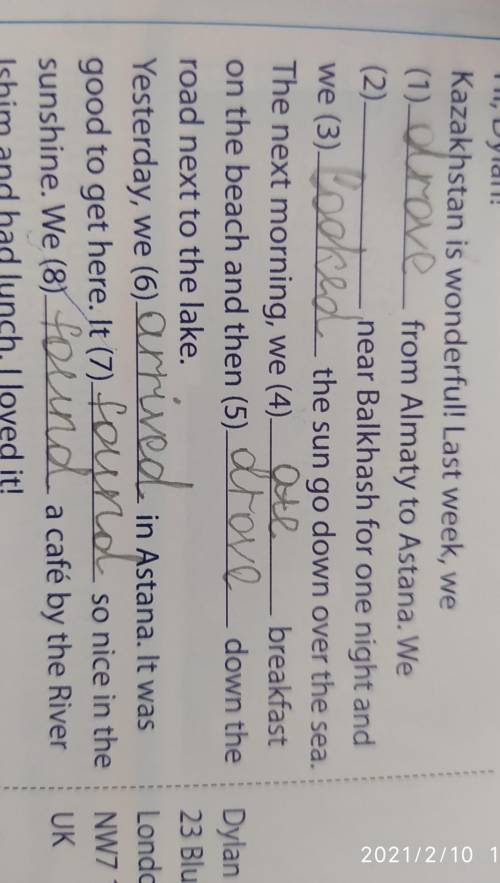 Dylan!
Kazakhstan is wonderful! Last week, we
(1) drove from Almaty to Astana. We
(2) near Balkhash for one night and
we (3) looked the sun go down over the sea.
The next morning, we (4) ate breakfast
on the beach and then (5) drove down the
road next to the lake.
Yesterday, we (6) arrived in Astana. It was
good to get here. It (7) found so nice in the
sunshine. We (8) found a café by the River
Ishim and had lunch. I loved it!
Dylan
23 Blu
Londo
NW7
UK
2021/2/10 1